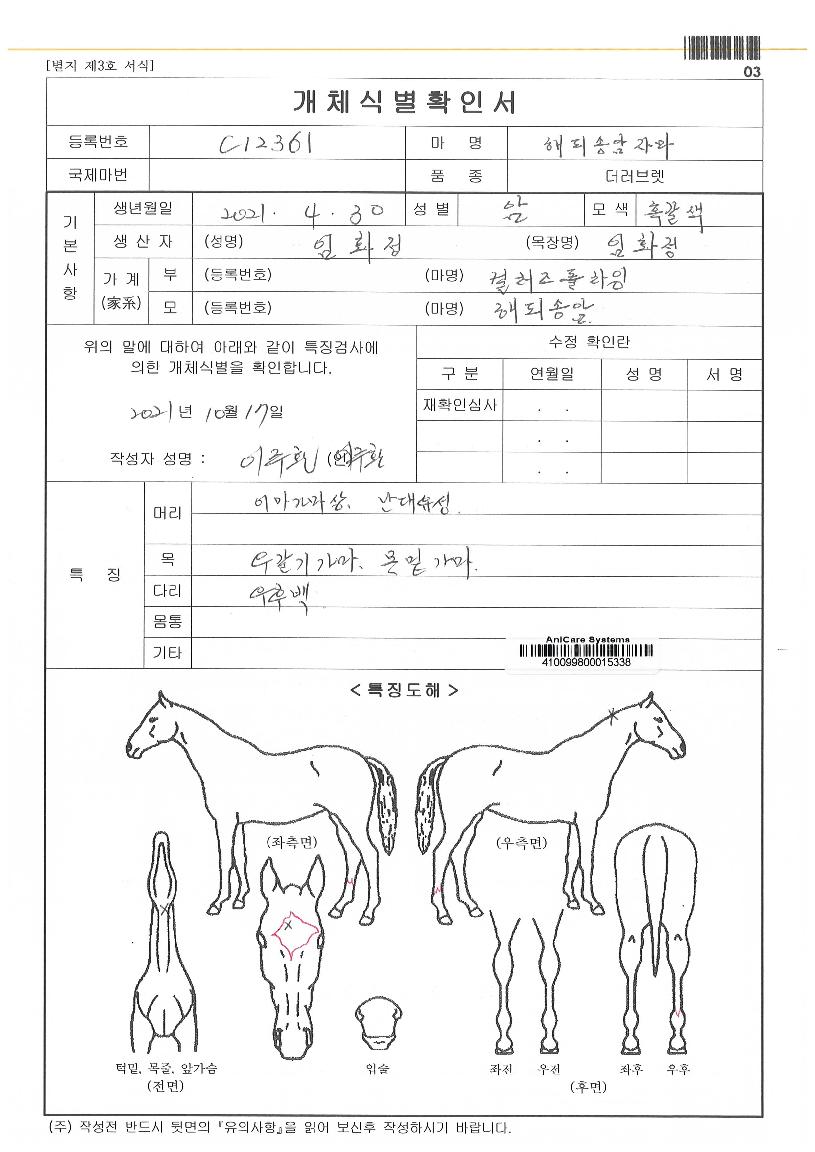 [별지 제3호 서식]
03
개체식별확인서
등록번호 C12361 마 명 해피송암자마
국제마번 품 종 더러브렛
기본사항
생년월일 2021. 4. 30 성별 암 모색 흑갈색
생산자 (성명) 임화정 (목장명) 임화정
가계(家系) 부 (등록번호) (마명) 컬러즈플라잉
모 (등록번호) (마명) 해피송암
위의 말에 대하여 아래와 같이 특징검사에
의한 개체식별을 확인합니다.
2021년 10월 17일
작성자 성명 : 이주환 (인) 이주환
수정 확인란
구분 연월일 성명 서명
재확인심사 . .
. .
. .
특 징
머리 이마가마상, 난대유성.
목 우갈기가마, 목밑가마.
다리 우후백
몸통
기타
AniCare Systems
410099800015338
< 특징도해 >
(좌측면) (우측면)
턱밑, 목줄, 앞가슴 입술 좌전 우전 좌후 우후
(전면) (후면)
(주) 작성전 반드시 뒷면의 『유의사항』을 읽어 보신후 작성하시기 바랍니다.